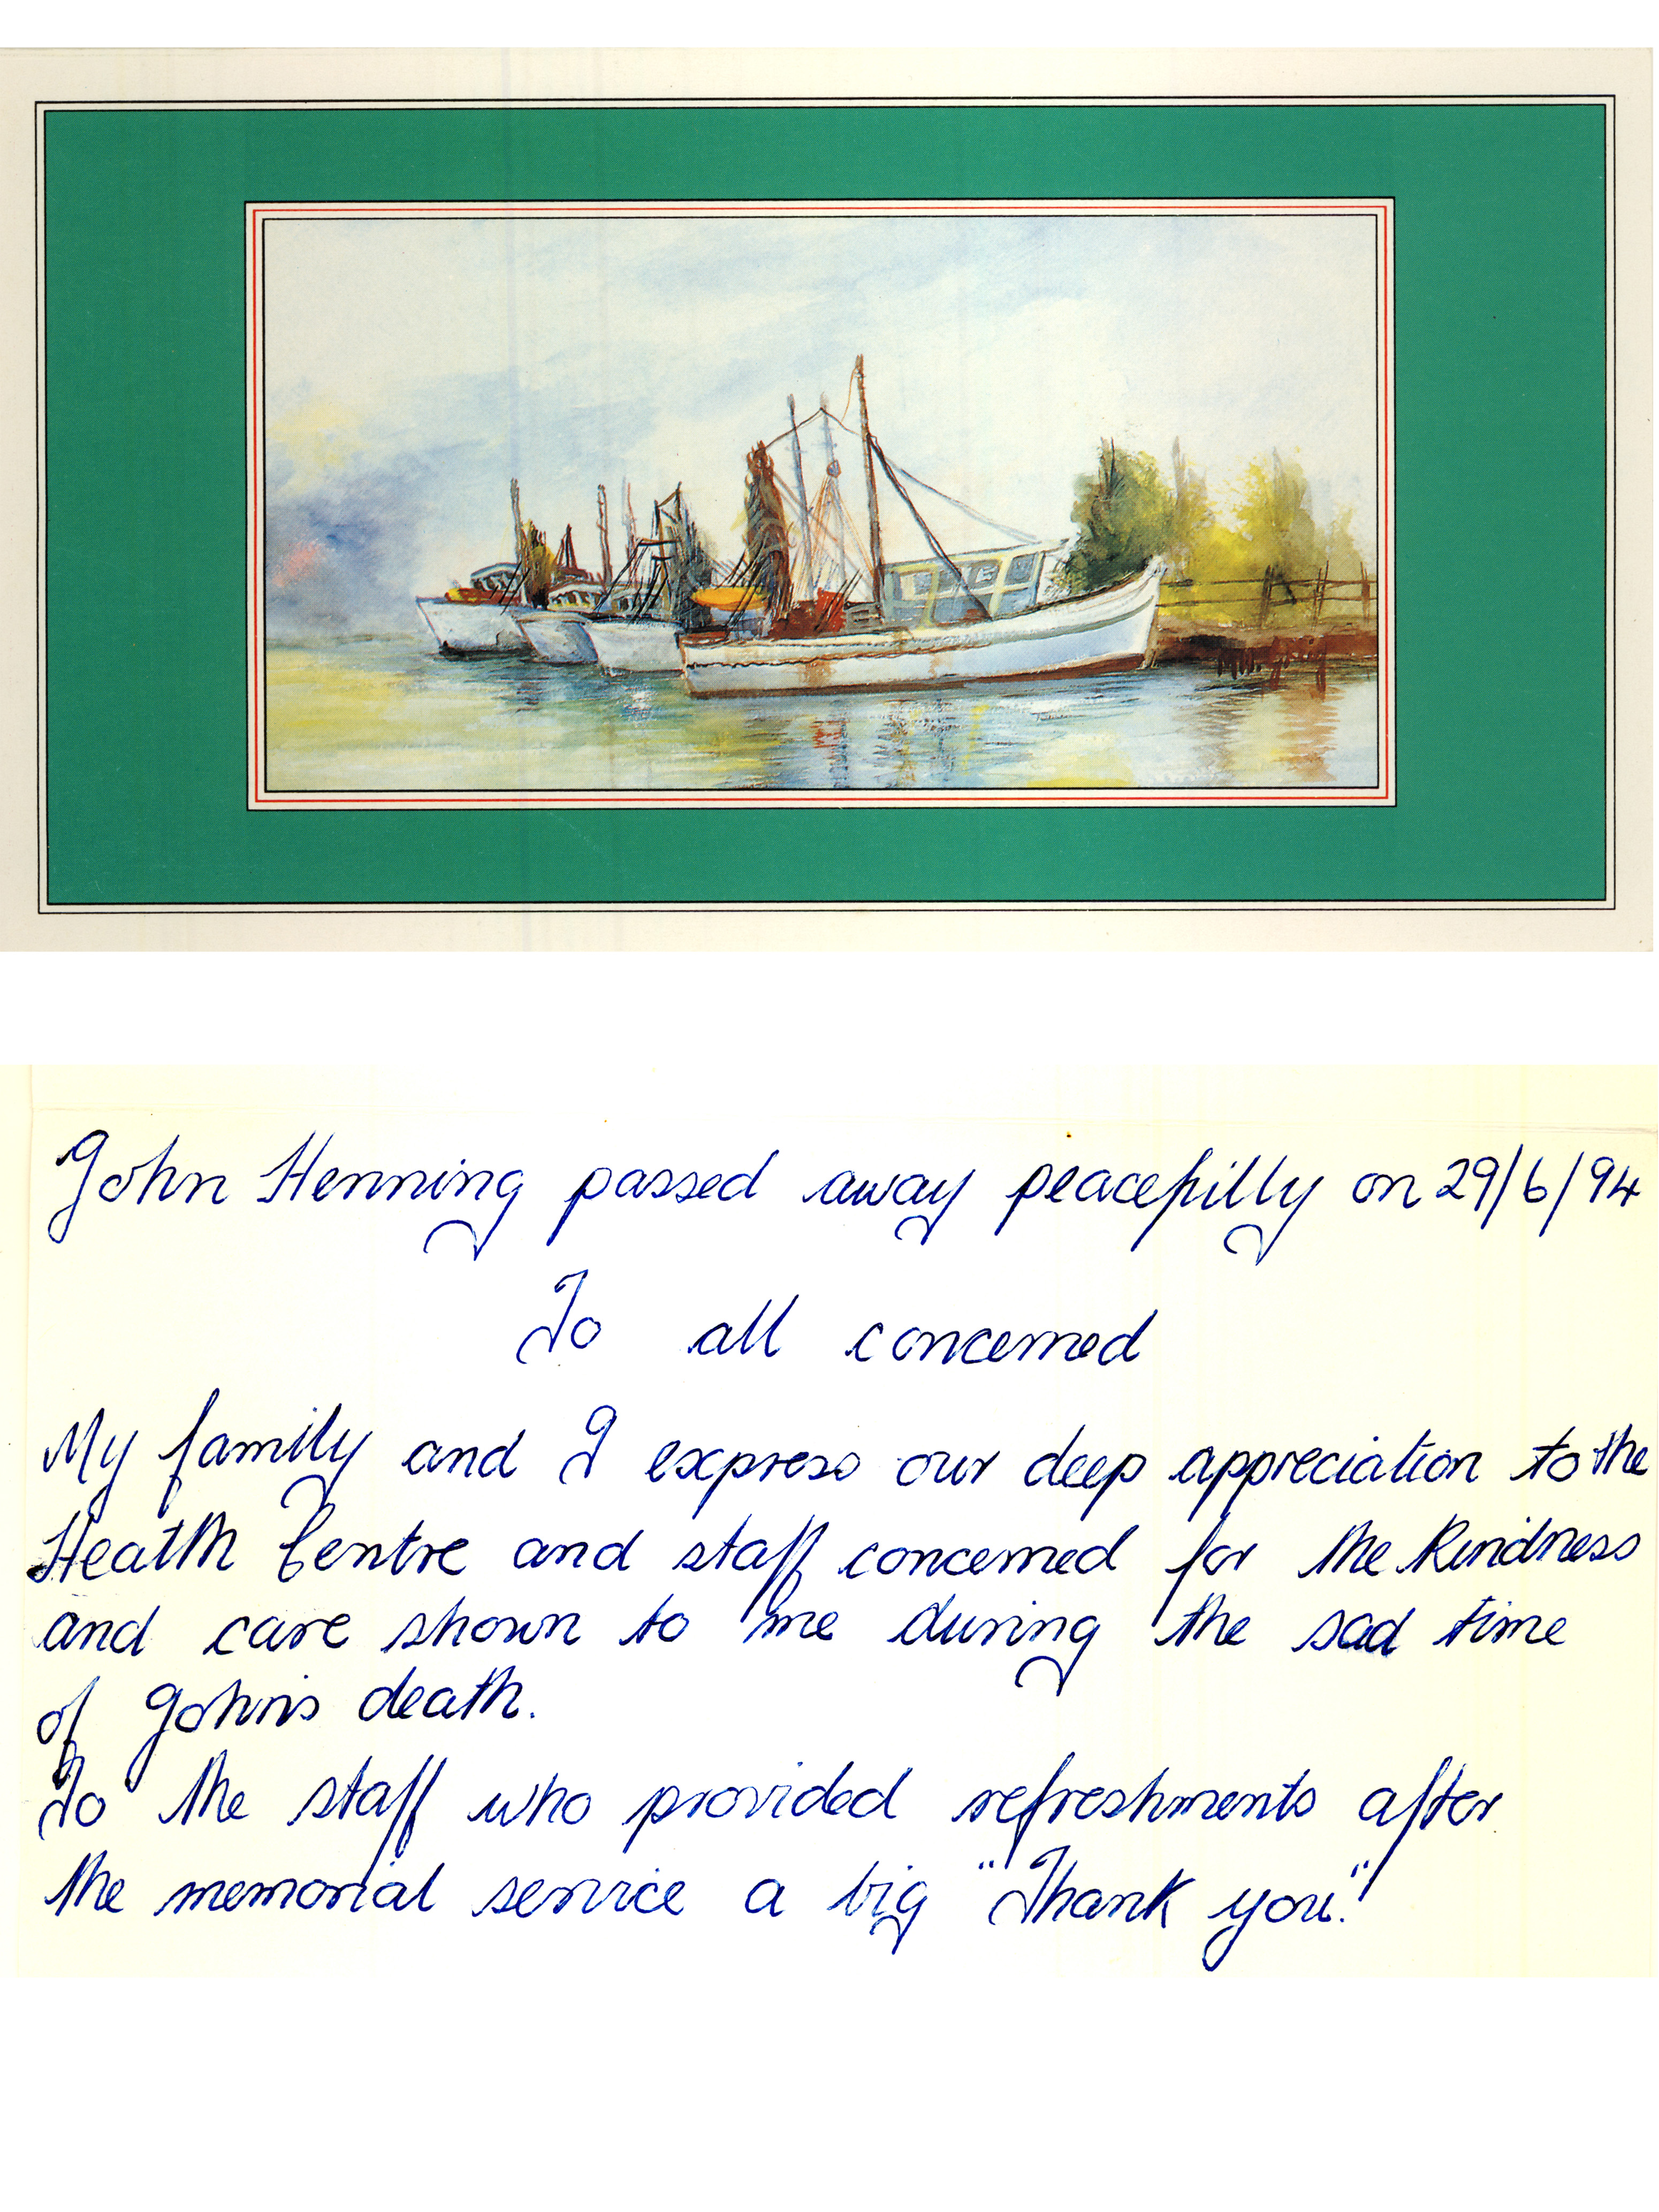 John Henning passed away peacefully on 29/6/94
To all concerned
My family and I express our deep appreciation to the
Health Centre and staff concerned for the kindness
and care shown to me during the sad time
of John's death.
To the staff who provided refreshments after
the memorial service a big "Thank you."